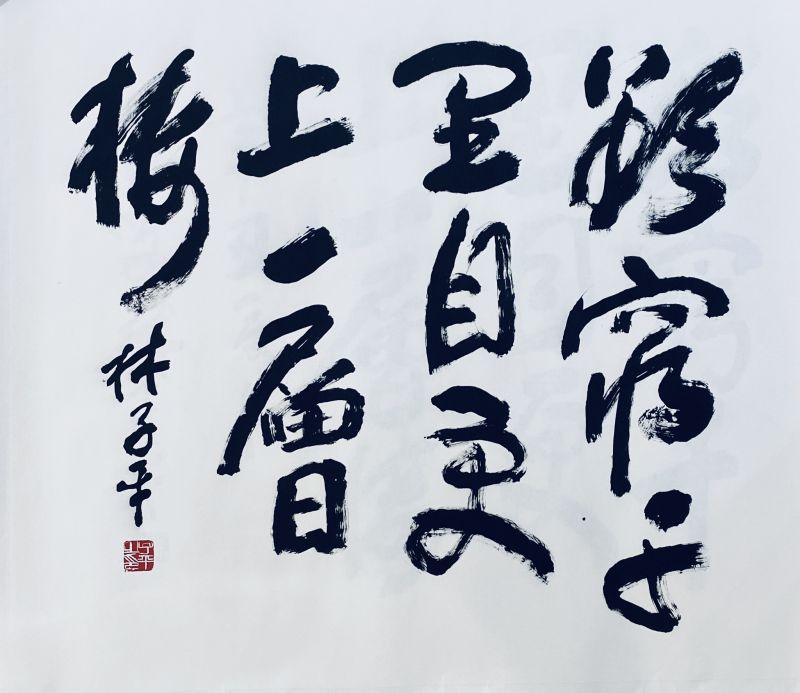 欲窮千
里目更
上一層
樓
林子平